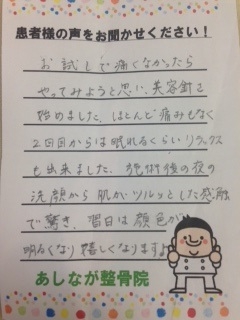 患者様の声をお聞かせください！
お試しで痛くなかったら
やってみようと思い、美容針を
始めました。ほとんど痛みもなく
2回目からは眠れるくらいリラックス
も出来ました。施術後の夜の
洗顔から肌がツルッとした感触
で驚き、翌日は顔色が
明るくなり嬉しくなりますよ
あしなが整骨院